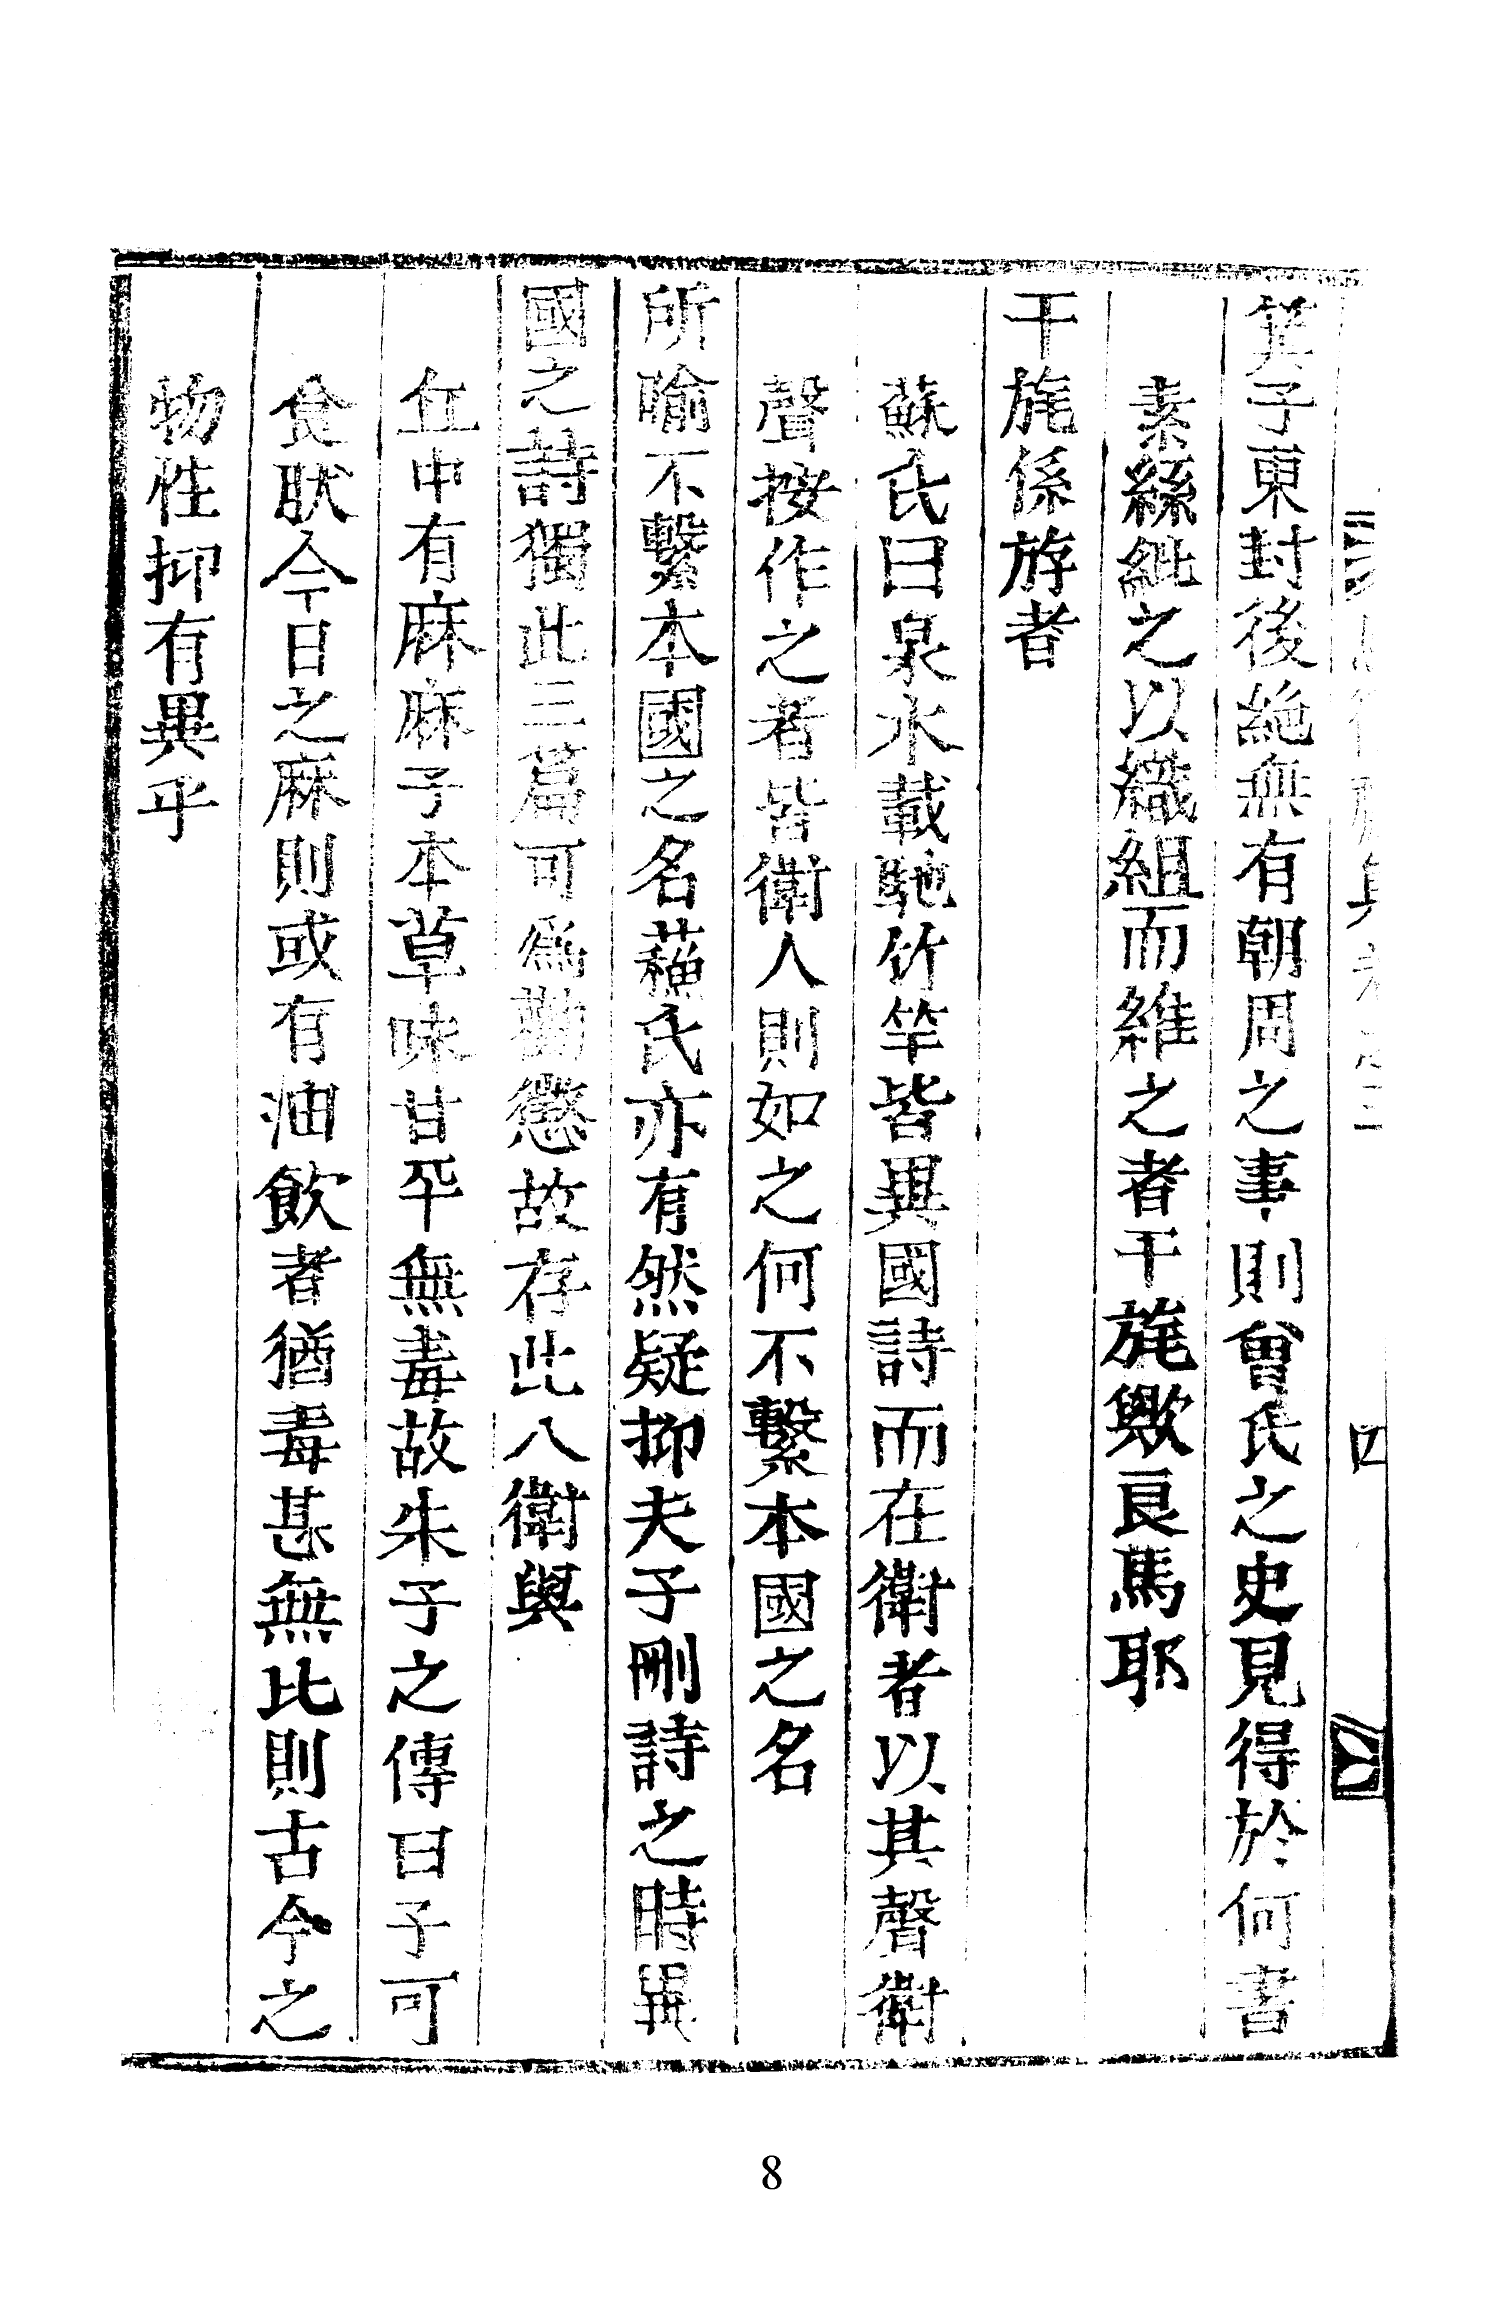 箕子東封後絶無有朝周之事則曾氏之史見得於何書
素絲紕之以織組而維之者干旄歟良馬耶
干旄係斿者
蘇氏曰泉水載馳竹竿皆異國詩而在衛者以其聲衛
聲按作之者皆衛人則如之何不繫本國之名
所喻不繫本國之名蘓氏亦有然疑抑夫子刪詩之時異
國之詩獨此三篇可爲勸懲故存此八衛與
丘中有麻麻子本草味甘平無毒故朱子之傳曰子可
食肰今日之麻則或有油飲者猶毒甚無比則古今之
物性抑有異乎
四
8